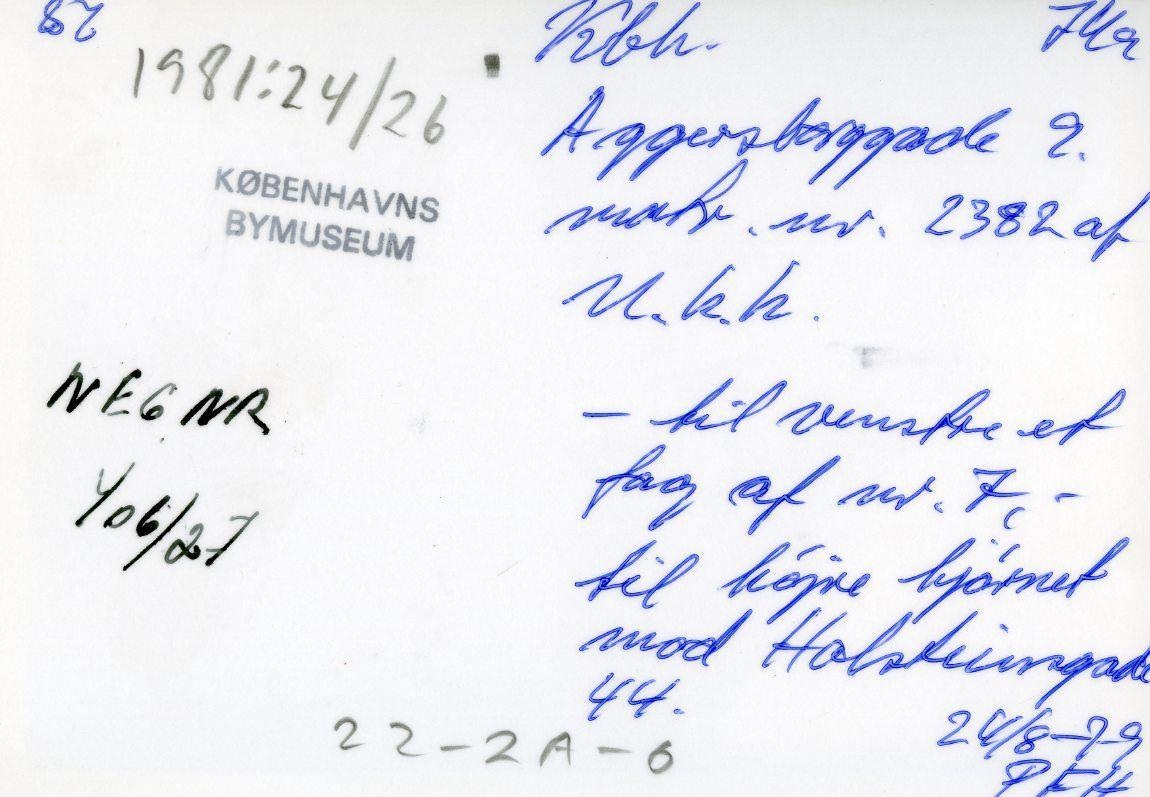 87
Kbh. 74a
1981:24/26
Aggersborggade 9.
KØBENHAVNS
BYMUSEUM
matr. nr. 2382 af
U.k.k.
NEG NR
406/27
- til venstre et
fag af nr. 7, -
til højre hjørnet
mod Holsteinsgade
44.
22-2A-6
24/8-79
PFH